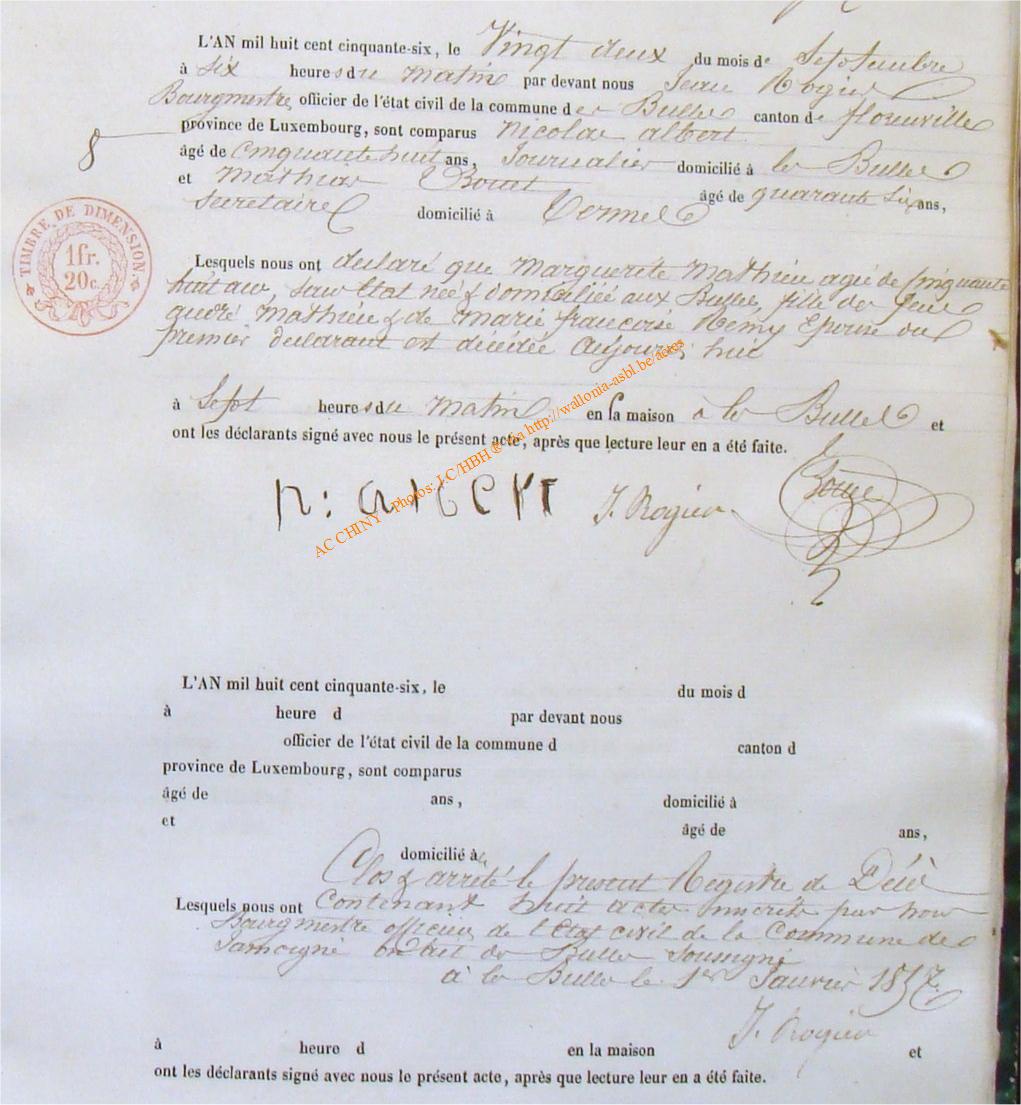 L'AN mil huit cent cinquante-six, le Vingt deux du mois de Septembre
à six heures du matin par devant nous Jean Rogier
Bourgmestre officier de l'état civil de la commune de Bulles canton de florenville
province de Luxembourg, sont comparus nicolas albert
8
âgé de Cinquante huit ans, Journalier domicilié à Bulles
et mathias Bouet âgé de quarante six ans,
Secretaire domicilié à termes
TIMBRE DE DIMENSION
1 fr.
20 c.
Lesquels nous ont déclaré que marguerite mathieu agée de Cinquante
huit ans, sans Etat née & domiciliée aux Bulles, fille de feu
mathieu & de marie francoise Remy Epouse du
premier declarant est decedée aujourd'hui
à Sept heures du matin en la maison à Bulles et
ont les déclarants signé avec nous le présent acte, après que lecture leur en a été faite.
n: albert J. Rogier
AC CHINY - Photos: J.C/HBH ® via http://wallonia-asbl.be/actes
L'AN mil huit cent cinquante-six, le du mois d
à heure d par devant nous
officier de l'état civil de la commune d canton d
province de Luxembourg, sont comparus
âgé de ans, domicilié à
et âgé de ans,
domicilié à
Clos & arrêté le present Registre de Décès
Lesquels nous ont Contenant huit actes inscrits par nous
Bourgmestre officier de l'Etat civil de la Commune de
Bulles Soussigné
à Bulles le 1er Janvier 1857.
J. Rogier
à heure d en la maison et
ont les déclarants signé avec nous le présent acte, après que lecture leur en a été faite.